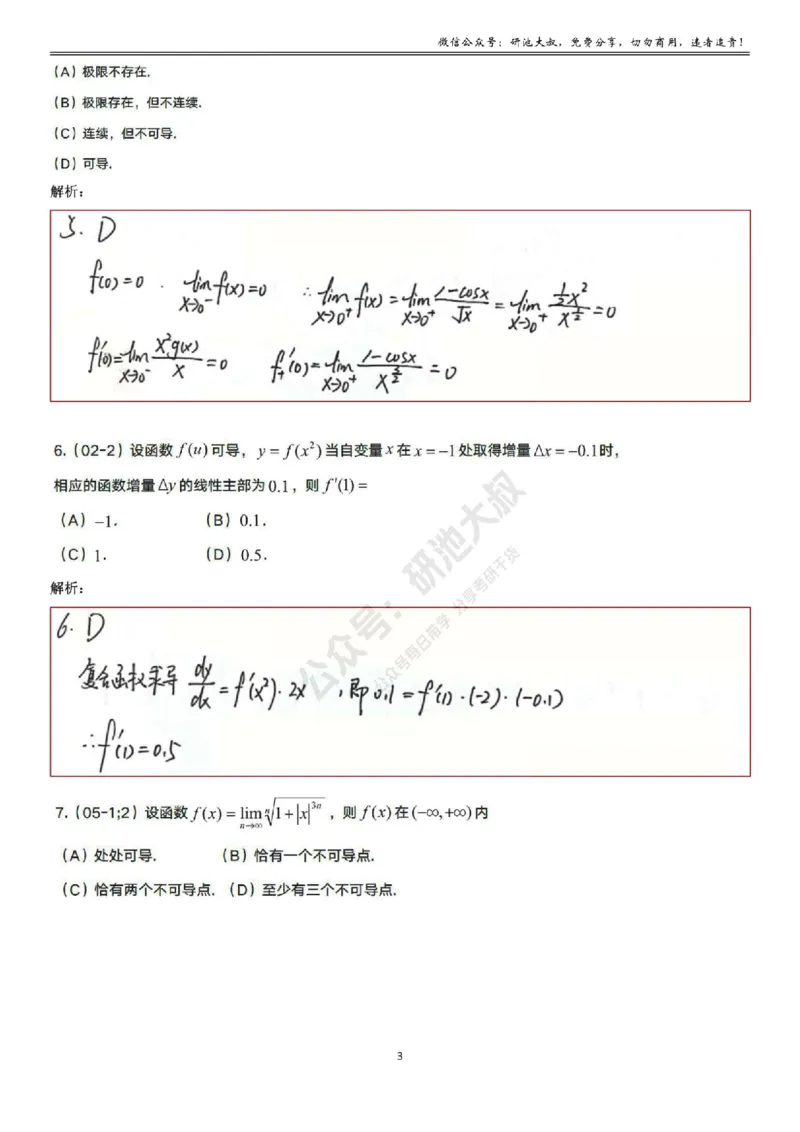 微信公众号：研池大叔，免费分享，切勿商用，违者追责！
（A）极限不存在.
（B）极限存在，但不连续.
（C）连续，但不可导.
（D）可导.
解析：
5. D
f(0)=0 . lim_{x→0⁻} f(x)=0 ∴ lim_{x→0⁺} f(x) = lim_{x→0⁺} (1-cosx)/√x = lim_{x→0⁺} (½x²)/x^{½} = 0
f'(0)= lim_{x→0⁻} x²g(x)/x = 0 f₊'(0)= lim_{x→0⁺} (1-cosx)/x^{3/2} = 0
6.（02-2）设函数 f(u) 可导，y = f(x²) 当自变量 x 在 x = −1 处取得增量 Δx = −0.1 时，
相应的函数增量 Δy 的线性主部为 0.1，则 f′(1) =
（A）−1. （B）0.1.
（C）1. （D）0.5.
解析：
6. D
复合函数求导 dy/dx = f'(x²)·2x ，即 0.1 = f'(1)·(-2)·(-0.1)
∴ f'(1)=0.5
7.（05-1;2）设函数 f(x) = lim_{n→∞} ⁿ√(1+|x|^{3n})，则 f(x) 在 (−∞,+∞) 内
（A）处处可导. （B）恰有一个不可导点.
（C）恰有两个不可导点. （D）至少有三个不可导点.
公众号：研池大叔
公众号每日带学 分享考研干货
3